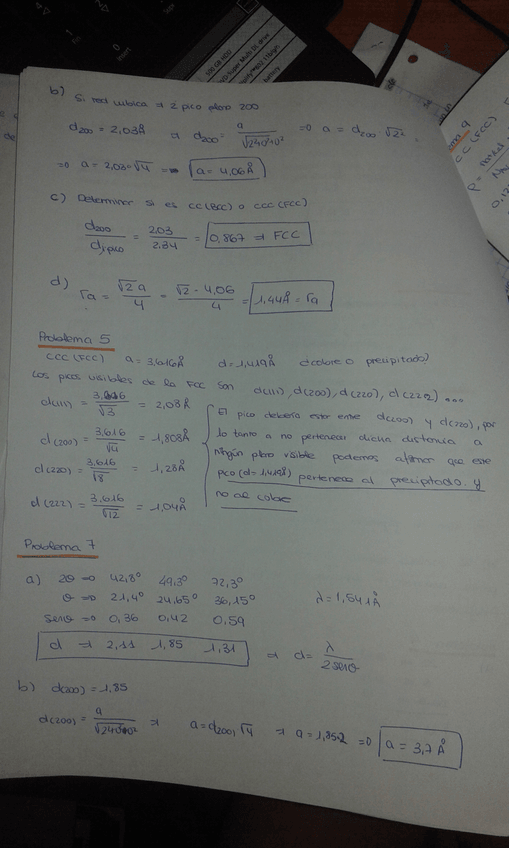 b) Si red cubica ⇒ 2º pico plano 200
d200 = 2,03Å ⇒ d200 = a / √(2²+0²+0²) ⇒ a = d200 · √2²
⇒ a = 2,03·√4 ⇒ a = 4,06Å
c) Determinar si es CC(BCC) o CCC(FCC)
d200 / d1pico = 2,03 / 2,34 = 0,867 ⇒ FCC
d) ra = √2 a / 4 = √2 · 4,06 / 4 = 1,44Å = ra
Problema 5
CCC(FCC) a = 3,616Å d = 1,419Å d(cobre o precipitado)
Los picos visibles de la FCC son d(111), d(200), d(220), d(222) ...
d(111) = 3,616 / √3 = 2,08Å
d(200) = 3,616 / √4 = 1,808Å
d(220) = 3,616 / √8 = 1,28Å
d(222) = 3,616 / √12 = 1,04Å
El pico debería estar entre d(200) y d(220), por
lo tanto a no pertenecer dicha distancia a
ningún plano visible podemos afirmar que este
pico (d = 1,419Å) pertenece al precipitado y
no al cobre
Problema 7
a) 2θ ⇒ 42,8º 49,3º 72,3º
θ ⇒ 21,4º 24,65º 36,15º λ = 1,541Å
senθ ⇒ 0,36 0,42 0,59
d ⇒ 2,11 1,85 1,31 ⇒ d = λ / 2senθ
b) d(200) = 1,85
d(200) = a / √(2²+0²+0²) ⇒ a = d200 √4 ⇒ a = 1,85·2 ⇒ a = 3,7 Å
500 GB HDD
DVD-Super Multi DL drive
battery
CC (FCC)